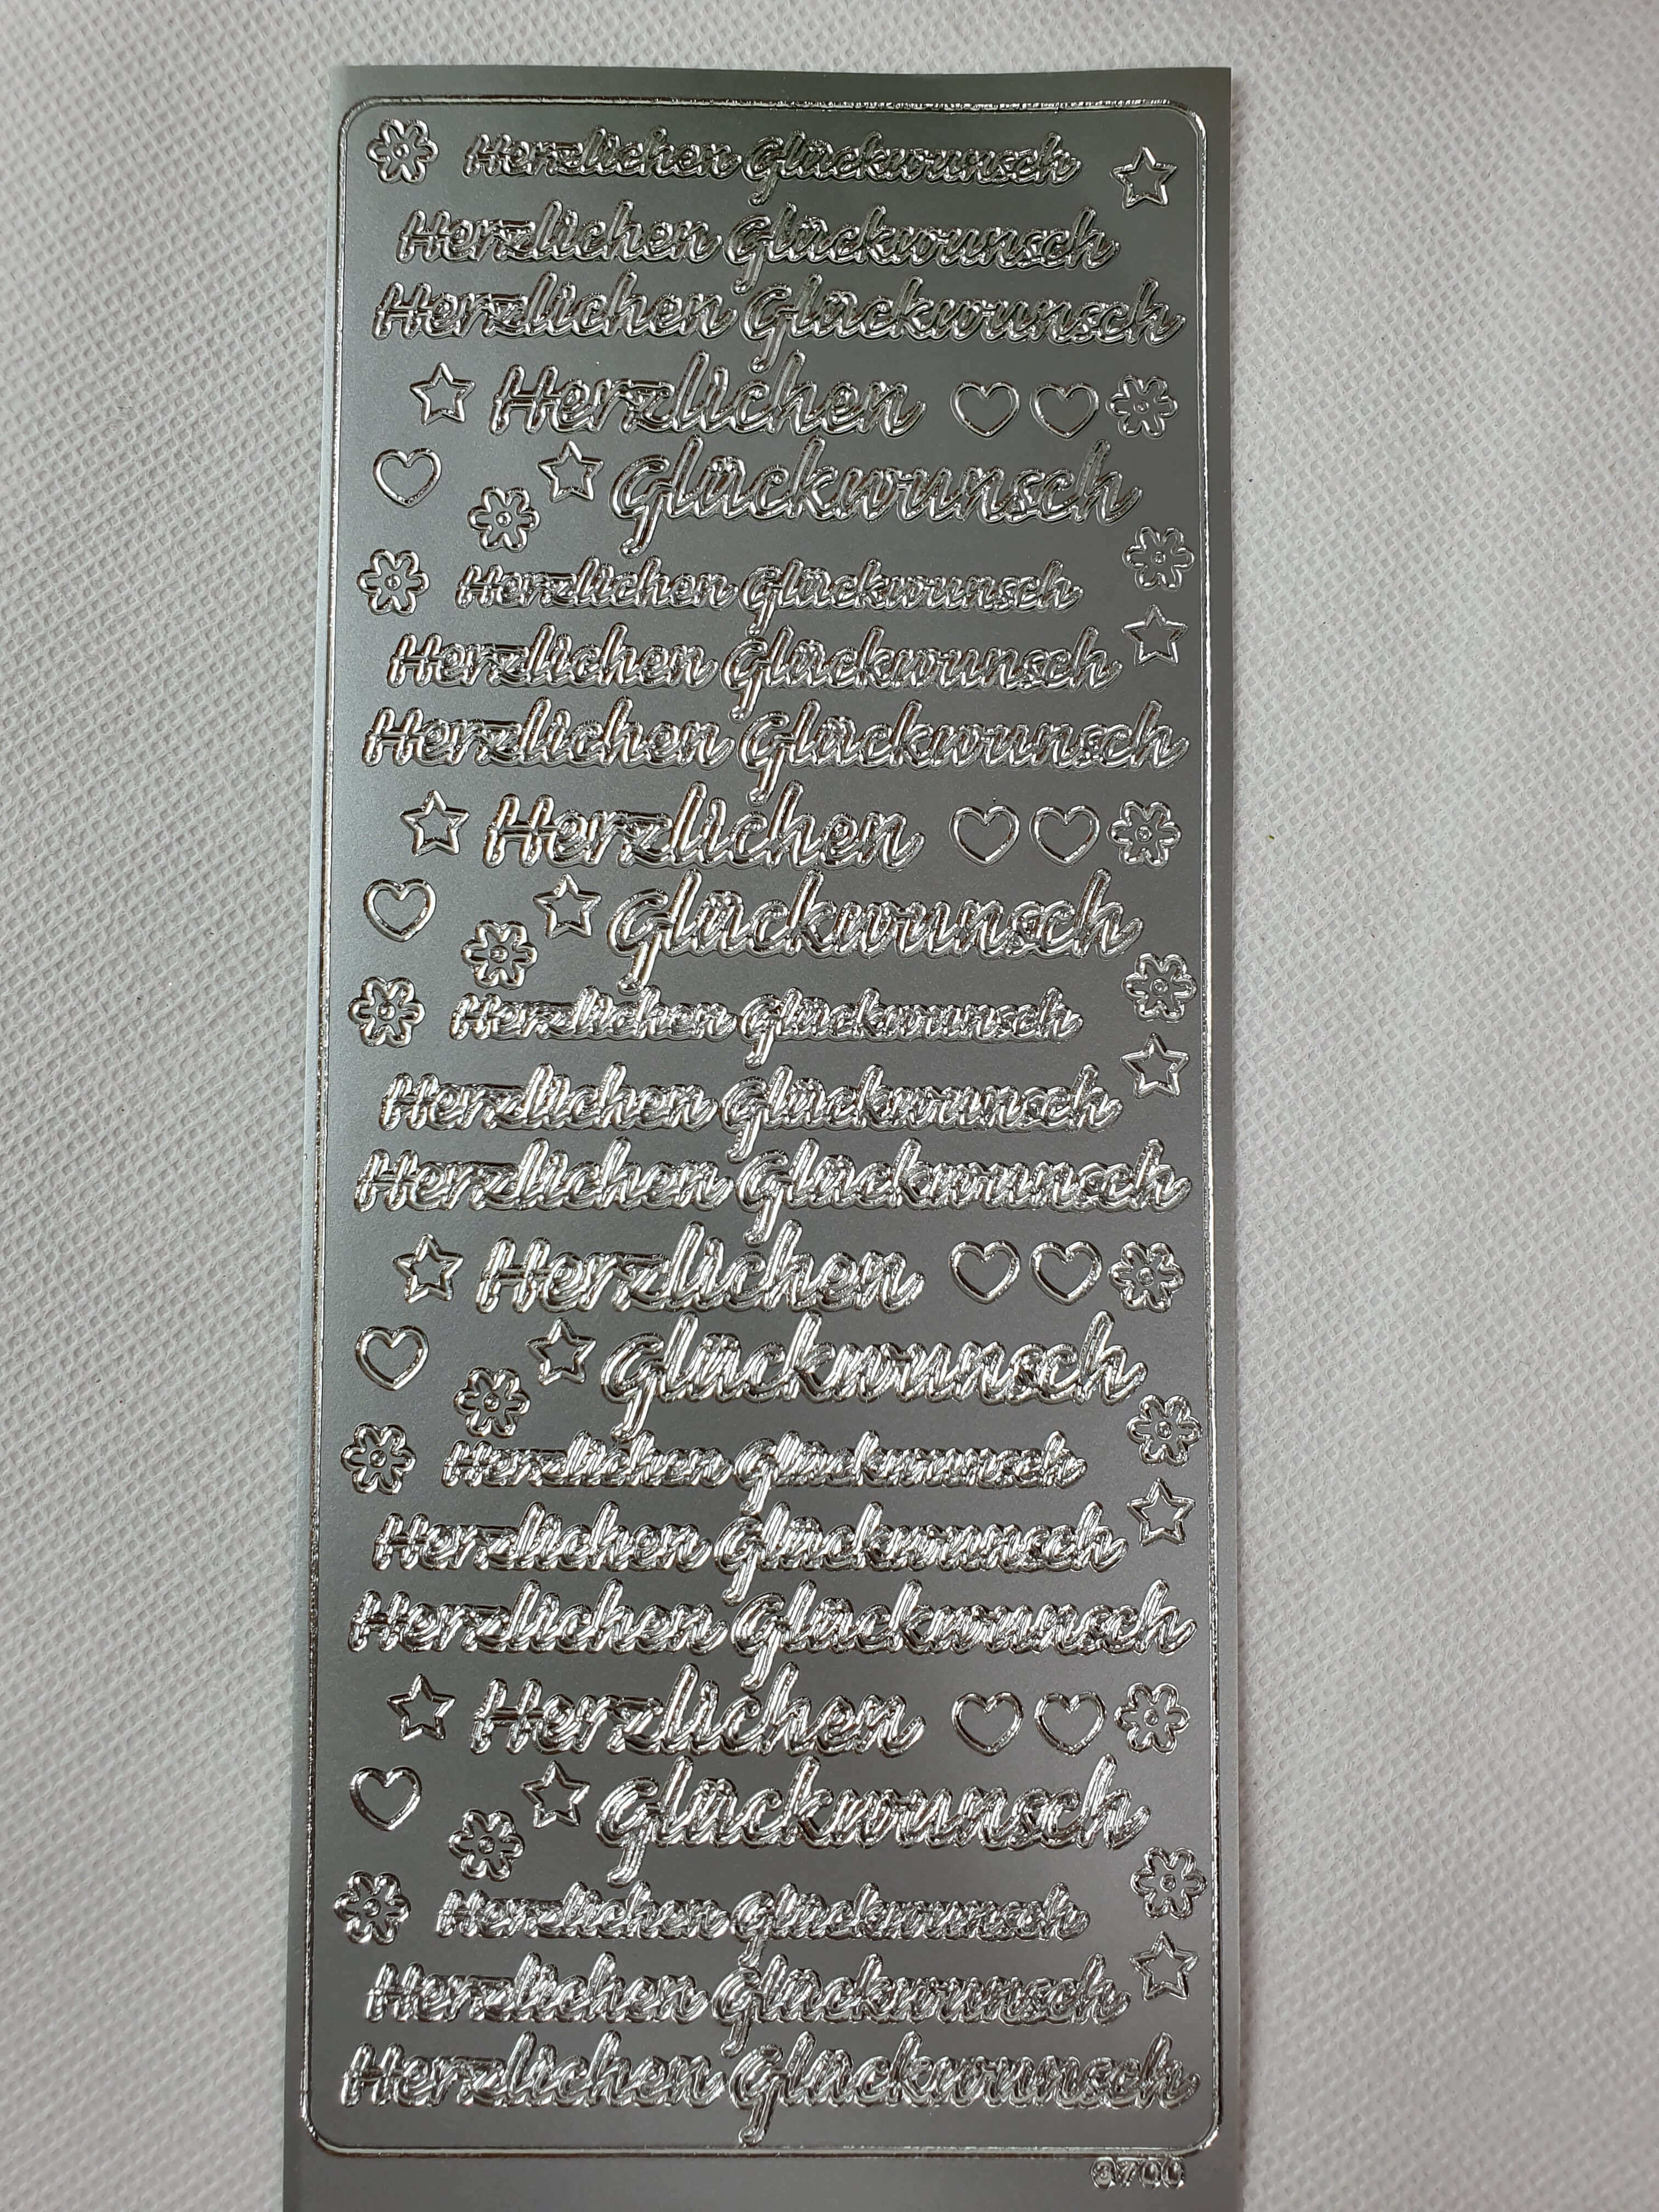 Herzlichen Glückwunsch
Herzlichen Glückwunsch
Herzlichen Glückwunsch
Herzlichen
Glückwunsch
Herzlichen Glückwunsch
Herzlichen Glückwunsch
Herzlichen Glückwunsch
Herzlichen
Glückwunsch
Herzlichen Glückwunsch
Herzlichen Glückwunsch
Herzlichen Glückwunsch
Herzlichen
Glückwunsch
Herzlichen Glückwunsch
Herzlichen Glückwunsch
Herzlichen Glückwunsch
Herzlichen
Glückwunsch
Herzlichen Glückwunsch
Herzlichen Glückwunsch
Herzlichen Glückwunsch
3700